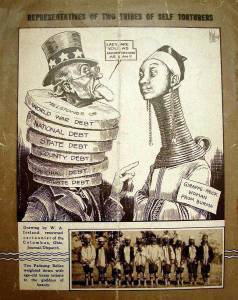 REPRESENTATIVES OF TWO TRIBES OF SELF TORTURERS
LADY, ARE YOU
AS
UNCOMFORTABLE
AS I AM?
MILLSTONES OF
WORLD WAR DEBT
NATIONAL DEBT
STATE DEBT
COUNTY DEBT
DEBT
PRIVATE DEBT
GIRAFFE-NECK
WOMAN
FROM BURMA
Drawing by W. A.
Ireland, renowned
cartoonist of the
Columbus, Ohio,
Journal-Dispatch.
Two Padaung Belles
weighted down with
age-old brass tribute
to the goddess of
beauty